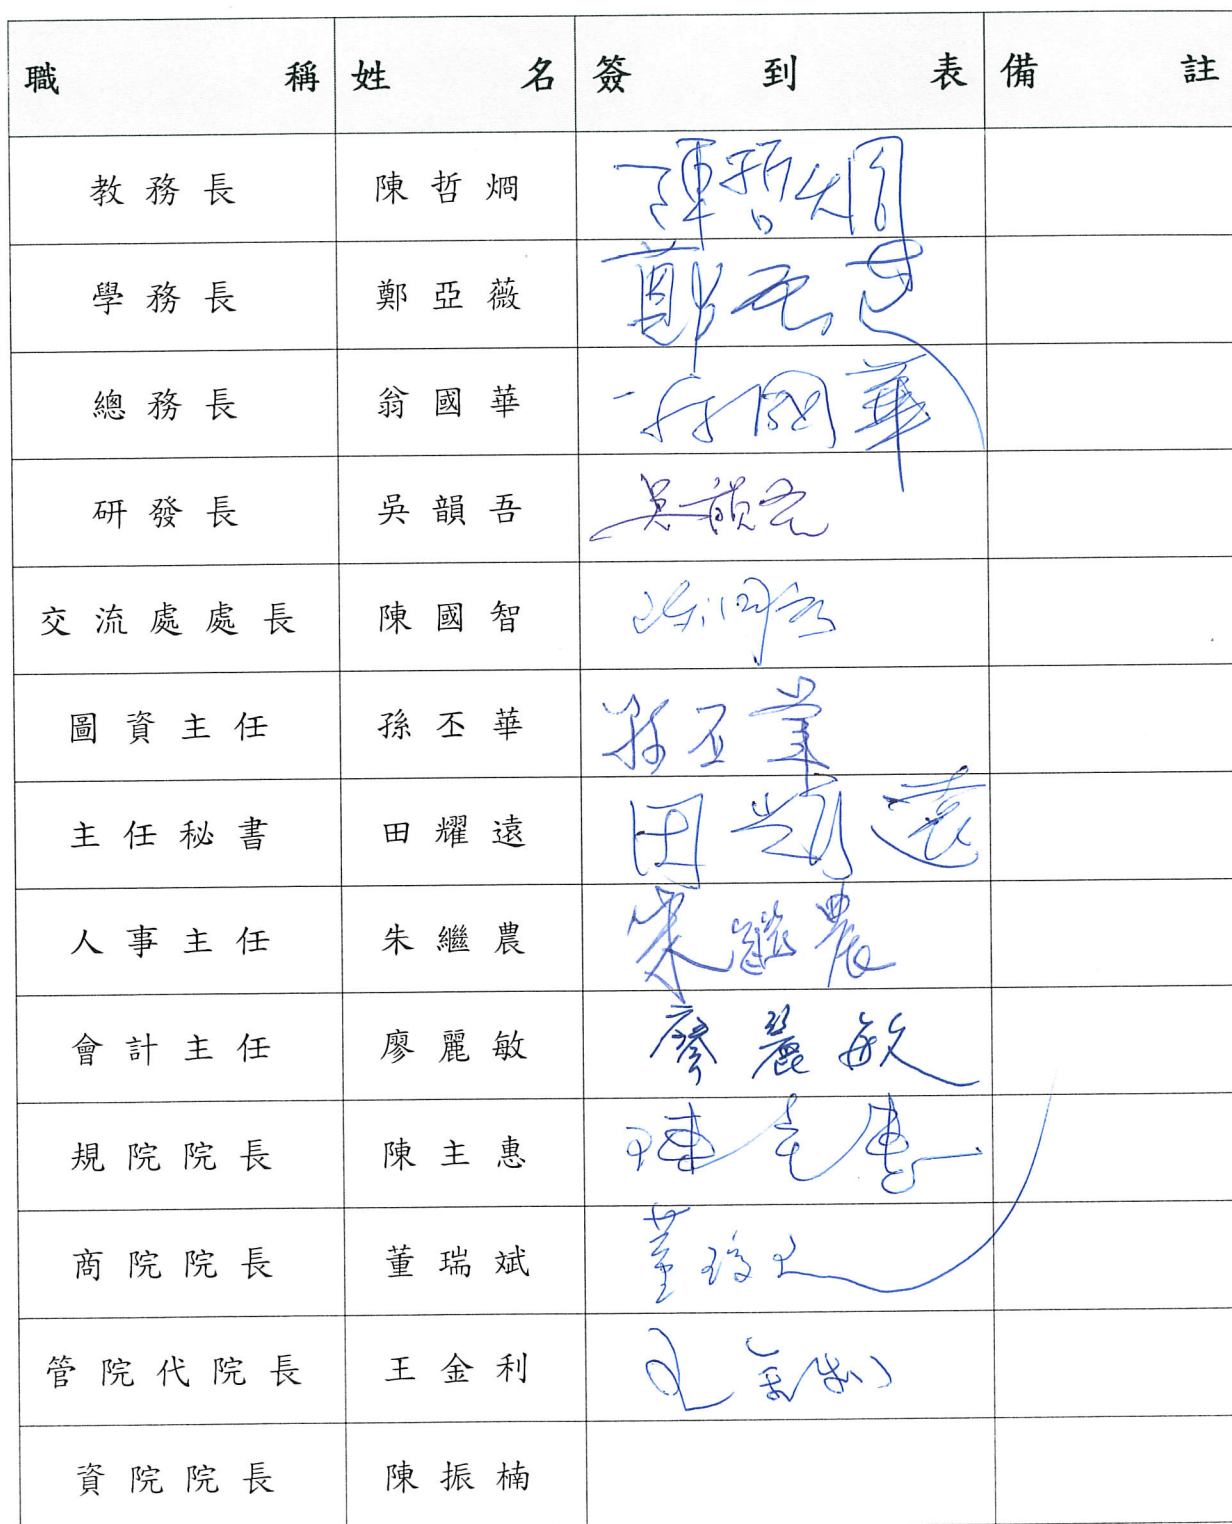 職稱 姓名 簽到表 備註
教務長 陳哲烱 陳哲烱
學務長 鄭亞薇 鄭亞薇
總務長 翁國華 翁國華
研發長 吳韻吾 吳韻吾
交流處處長 陳國智 陳國智
圖資主任 孫丕華 孫丕華
主任秘書 田耀遠 田耀遠
人事主任 朱繼農 朱繼農
會計主任 廖麗敏 廖麗敏
規院院長 陳主惠 陳主惠
商院院長 董瑞斌
管院代院長 王金利 王金利
資院院長 陳振楠